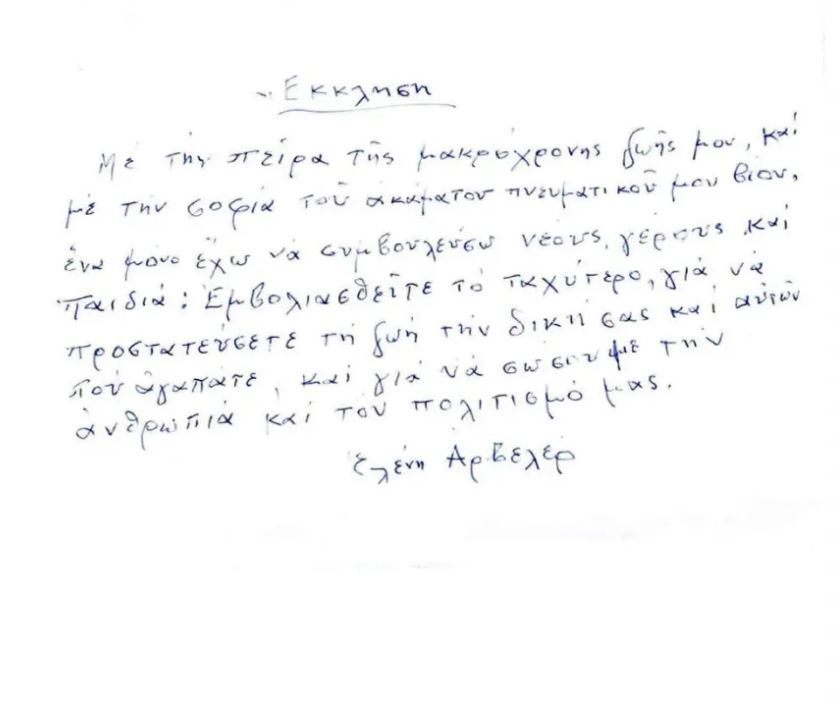 Έκκληση
Μὲ τὴν πεῖρα τῆς μακρόχρονης ζωῆς μου, καὶ
μὲ τὴν σοφία τοῦ ἀκάματου πνευματικοῦ μου βίου,
ἕνα μόνο ἔχω νὰ συμβουλεύσω νέους, γέρους καὶ
παιδιά: Ἐμβολιασθεῖτε τὸ ταχύτερο, γιὰ νὰ
προστατεύσετε τὴ ζωὴ τὴν δική σας καὶ αὐτῶν
ποὺ ἀγαπᾶτε, καὶ γιὰ νὰ σώσουμε τὴν
ἀνθρωπιὰ καὶ τὸν πολιτισμό μας.
Ἑλένη Ἀρβελέρ